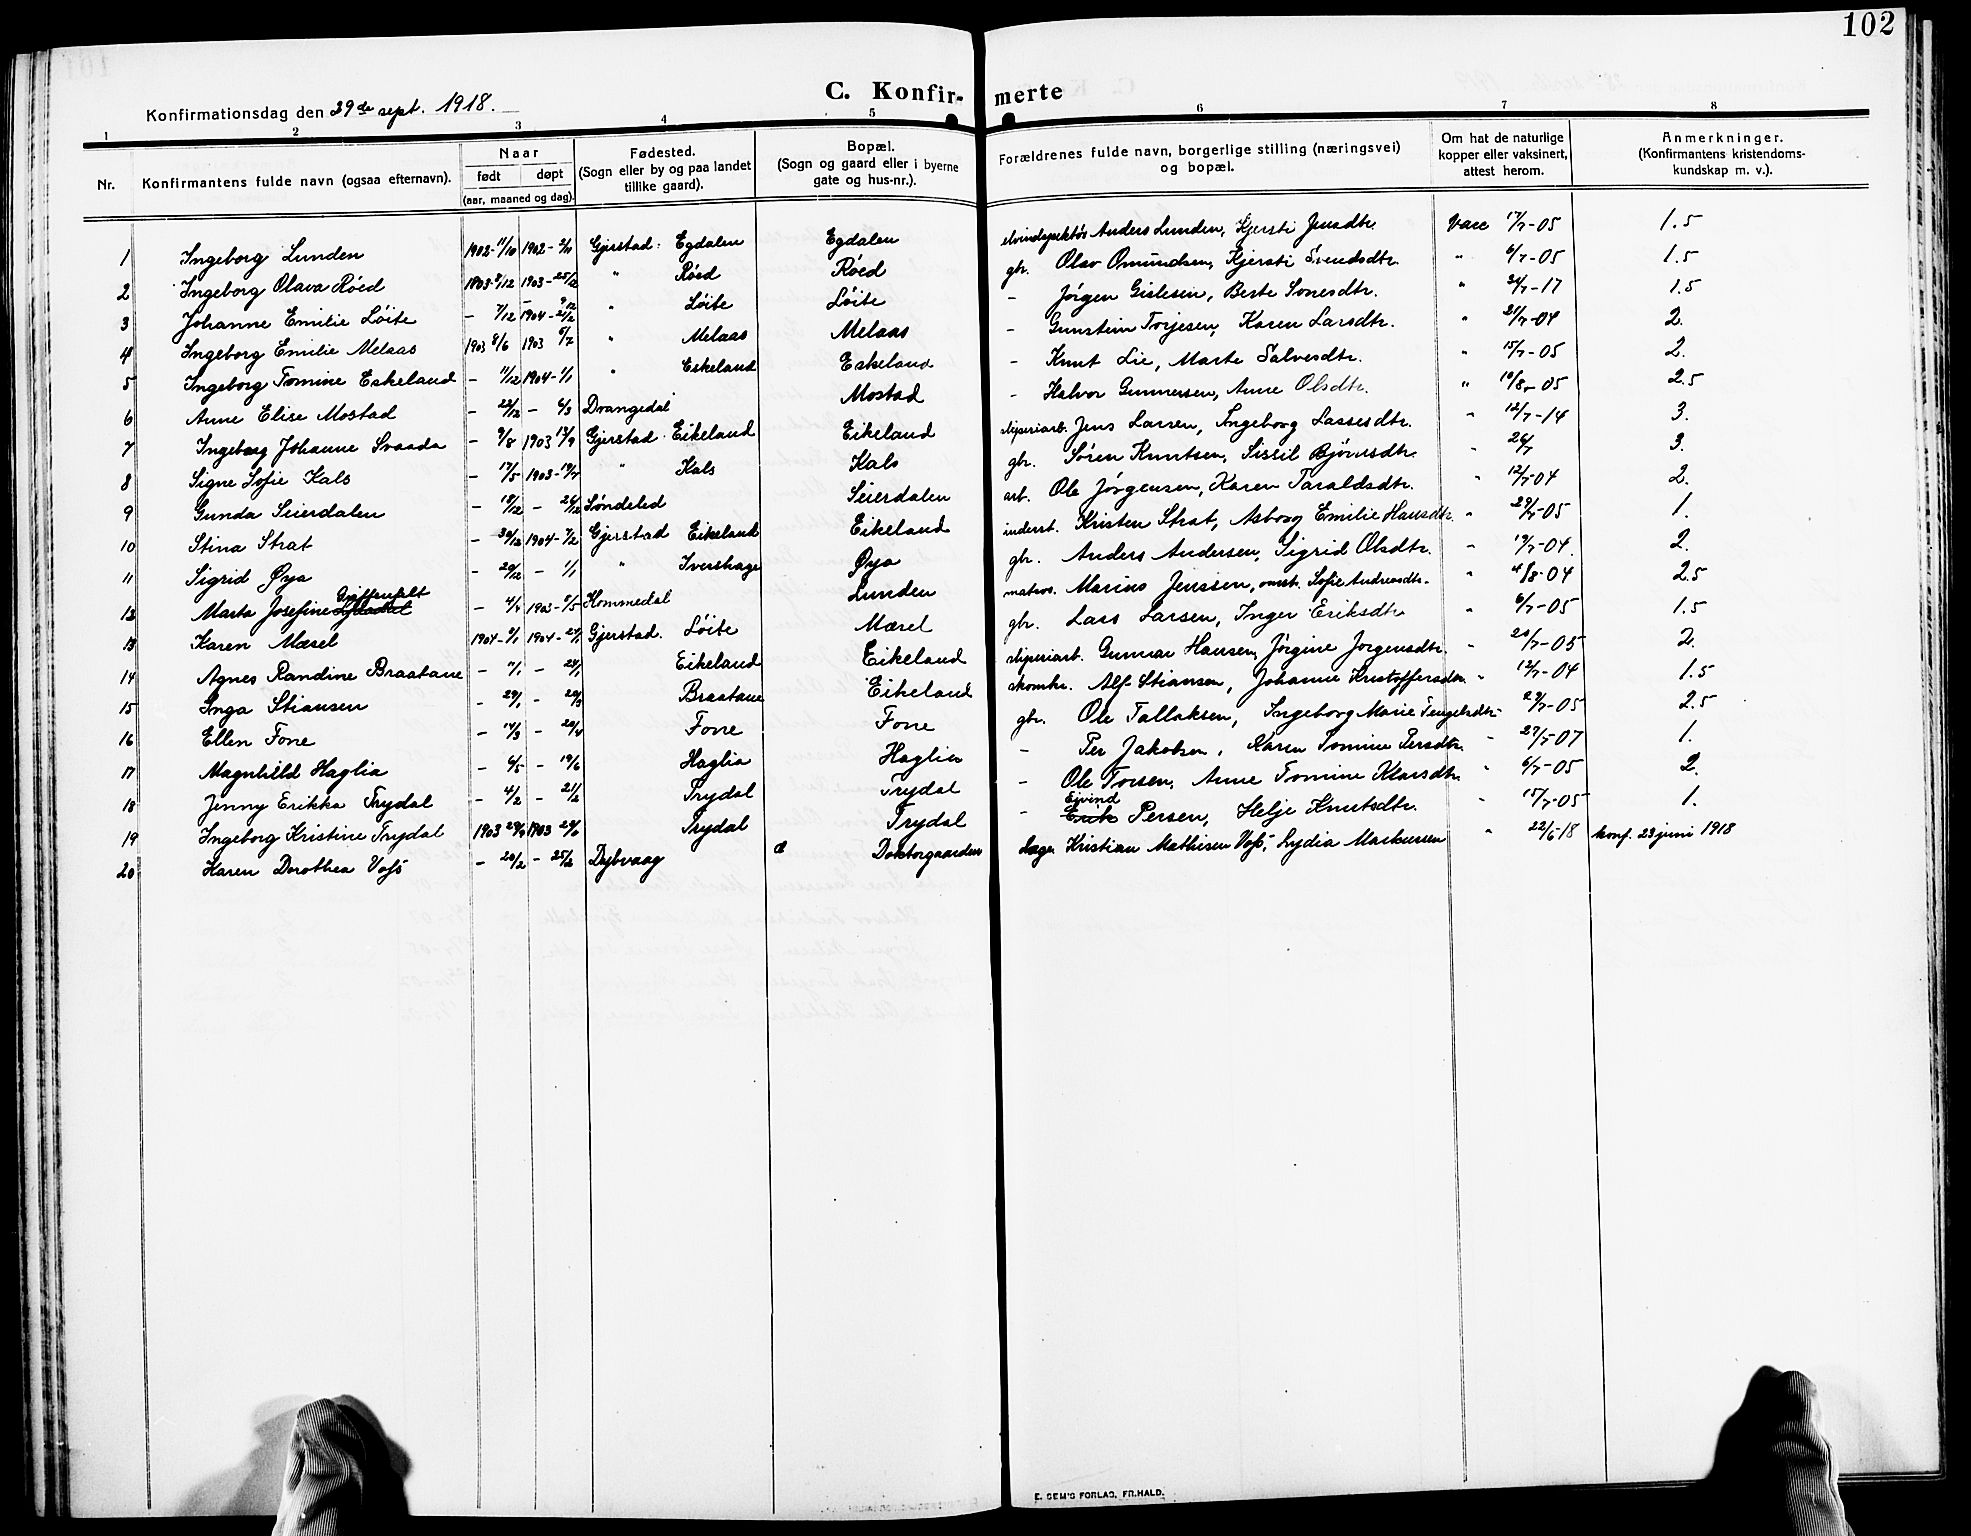 102
C. Konfir- merte
Konfirmationsdag den 29de sept. 1918.
1 2 3 4 5 6 7 8
Nr. Konfirmantens fulde navn (ogsaa efternavn). Naar født døpt (aar, maaned og dag). Fødested. (Sogn eller by og paa landet tillike gaard). Bopæl. (Sogn og gaard eller i byerne gate og hus-nr.). Forældrenes fulde navn, borgerlige stilling (næringsvei) og bopæl. Om hat de naturlige kopper eller vaksinert, attest herom. Anmerkninger. (Konfirmantens kristendoms-kundskap m. v.).
1 Ingeborg Lunden 1902-11/10 1902- Gjerstad: Egdalen Egdalen Anders Lunden, Kjersti Jensdtr. Vacc 17/7-05 1.5
2 Ingeborg Olava Røed 1903 1903-25/12 " Røed Røed gbr. Olav Omundsen, Kjersti Svendsdtr. " 6/7-05 1.5
3 Johanne Emilie Løite - 7/12 1904-21/2 " Løite Løite - Jørgen Gislesen, Berte Sonesdtr. " 24/7-17 1.5
4 Ingeborg Emilie Melaas 1903 8/6 1903 5/7 " Melaas Melaas - Gunstein Torjesen, Karen Larsdtr. " 21/7-04 2.
5 Ingeborg Tomine Eskeland - 11/12 1904-1/1 " Eskeland Eskeland - Knut Lie, Marte Salvesdtr. " 15/7-05 2.
6 Anne Elise Mostad - 22/12 - 6/3 Drangedal Mostad - Halvor Gunnersen, Anne Olsdtr. " 10/8-05 2.5
7 Ingeborg Johanne Svaada - 9/8 1903 13/9 Gjerstad Eikeland Eikeland sliperiarb. Jens Larsen, Ingeborg Lassesdtr. " 12/7-14 3.
8 Signe Sofie Kals - 17/5 1903-19/7 " Kals Kals gbr. Søren Knutsen, Sissil Bjørnsdtr. " 26/7 3.
9 Gunda Seierdalen - 18/12 - 26/12 Søndeled Seierdalen arb. Ole Jørgensen, Karen Taraldsdtr. " 12/7-04 2.
10 Stina Strat - 30/12 1904-7/2 Gjerstad Eikeland Eikeland inderst. Kristen Strat, Asborg Emilie Hansdtr. " 29/7-05 1.
11 Sigrid Øya - 20/12 - 1/1 " Ivershage Øya gbr. Anders Andersen, Sigrid Olsdtr. " 19/7-04. 2.
12 Marta Josefine Griffenfelt - 4/4 1903-5/5 Kommedal Lunden matros. Marius Jenssen, Sofie Andreasdtr. " 4/8-04 2.5
13 Karen Mæsel 1904-9/1 1904-24/1 Gjerstad. Løite Mæsel gbr. Lars Larsen, Inger Eriksdtr " 6/7-05 1.5
14 Agnes Randine Braatane - 7/1 - 28/1 Eikeland Eikeland sliperiarb. Gunnar Hansen, Jørgine Jørgensdtr. " 20/7-05 2.
15 Inga Stiansen - 29/1 - 20/3 Braatane Eikeland skomkr. Alf Stiansen, Johanne Kristoffersdtr. " 12/7-04 1.5
16 Ellen Fone - 14/3 - 20/4 Fone Fone gbr. Ole Tallaksen, Ingeborg Marie Tengelsdtr. 29/7-05 2.5
17 Magnhild Haglia - 6/5 - 19/6 Haglia Haglia - Per Jakobsen, Karen Tomine Persdtr. " 27/7-07 1.
18 Jenny Erikka Trydal - 4/2 - 21/2 Trydal Trydal - Ole Torsen, Anne Tomine Klarsdtr. " 6/7-05 2.
19 Ingeborg Kristine Trydal 1903 1903 Trydal Trydal - Eivind Erik Persen, Helje Knutsdtr. " 15/7-05 1.
20 Karen Dorothea Voss - 20/2 - 25/6 Dybvaag Doktorgaarden læge Kristian Mathisen Voss, Lydia Markussen " 22/6-18 konf. 23 juni 1918
E. SEM'S FORLAG, FR.HALD.